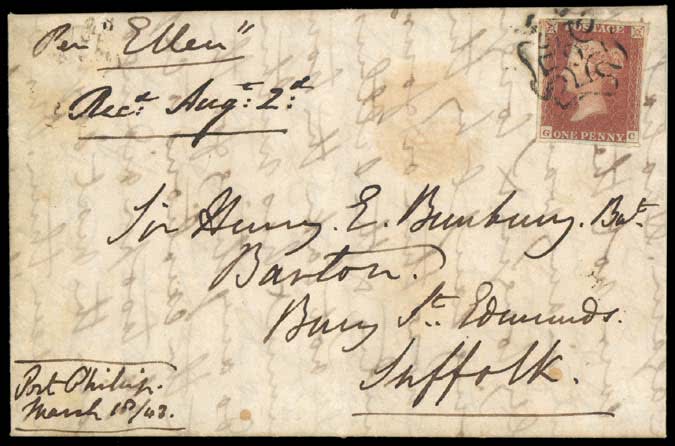 Per "Ellen"
Rec.t Aug:t 2:d
POSTAGE
G ONE PENNY C
Sir Henry. E. Bunbury. Bat.
Barton.
Bury St. Edmunds.
Suffolk.
Port Philip.
March 18/43.